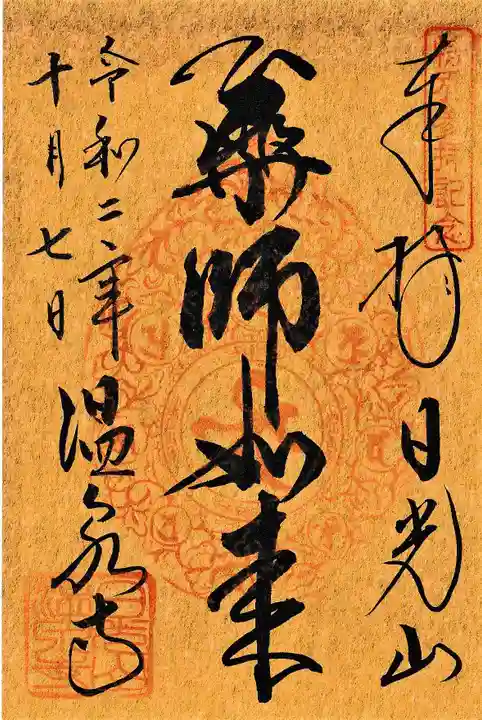 奉拝 日光山
薬師如来
令和二年
十月七日
温泉寺